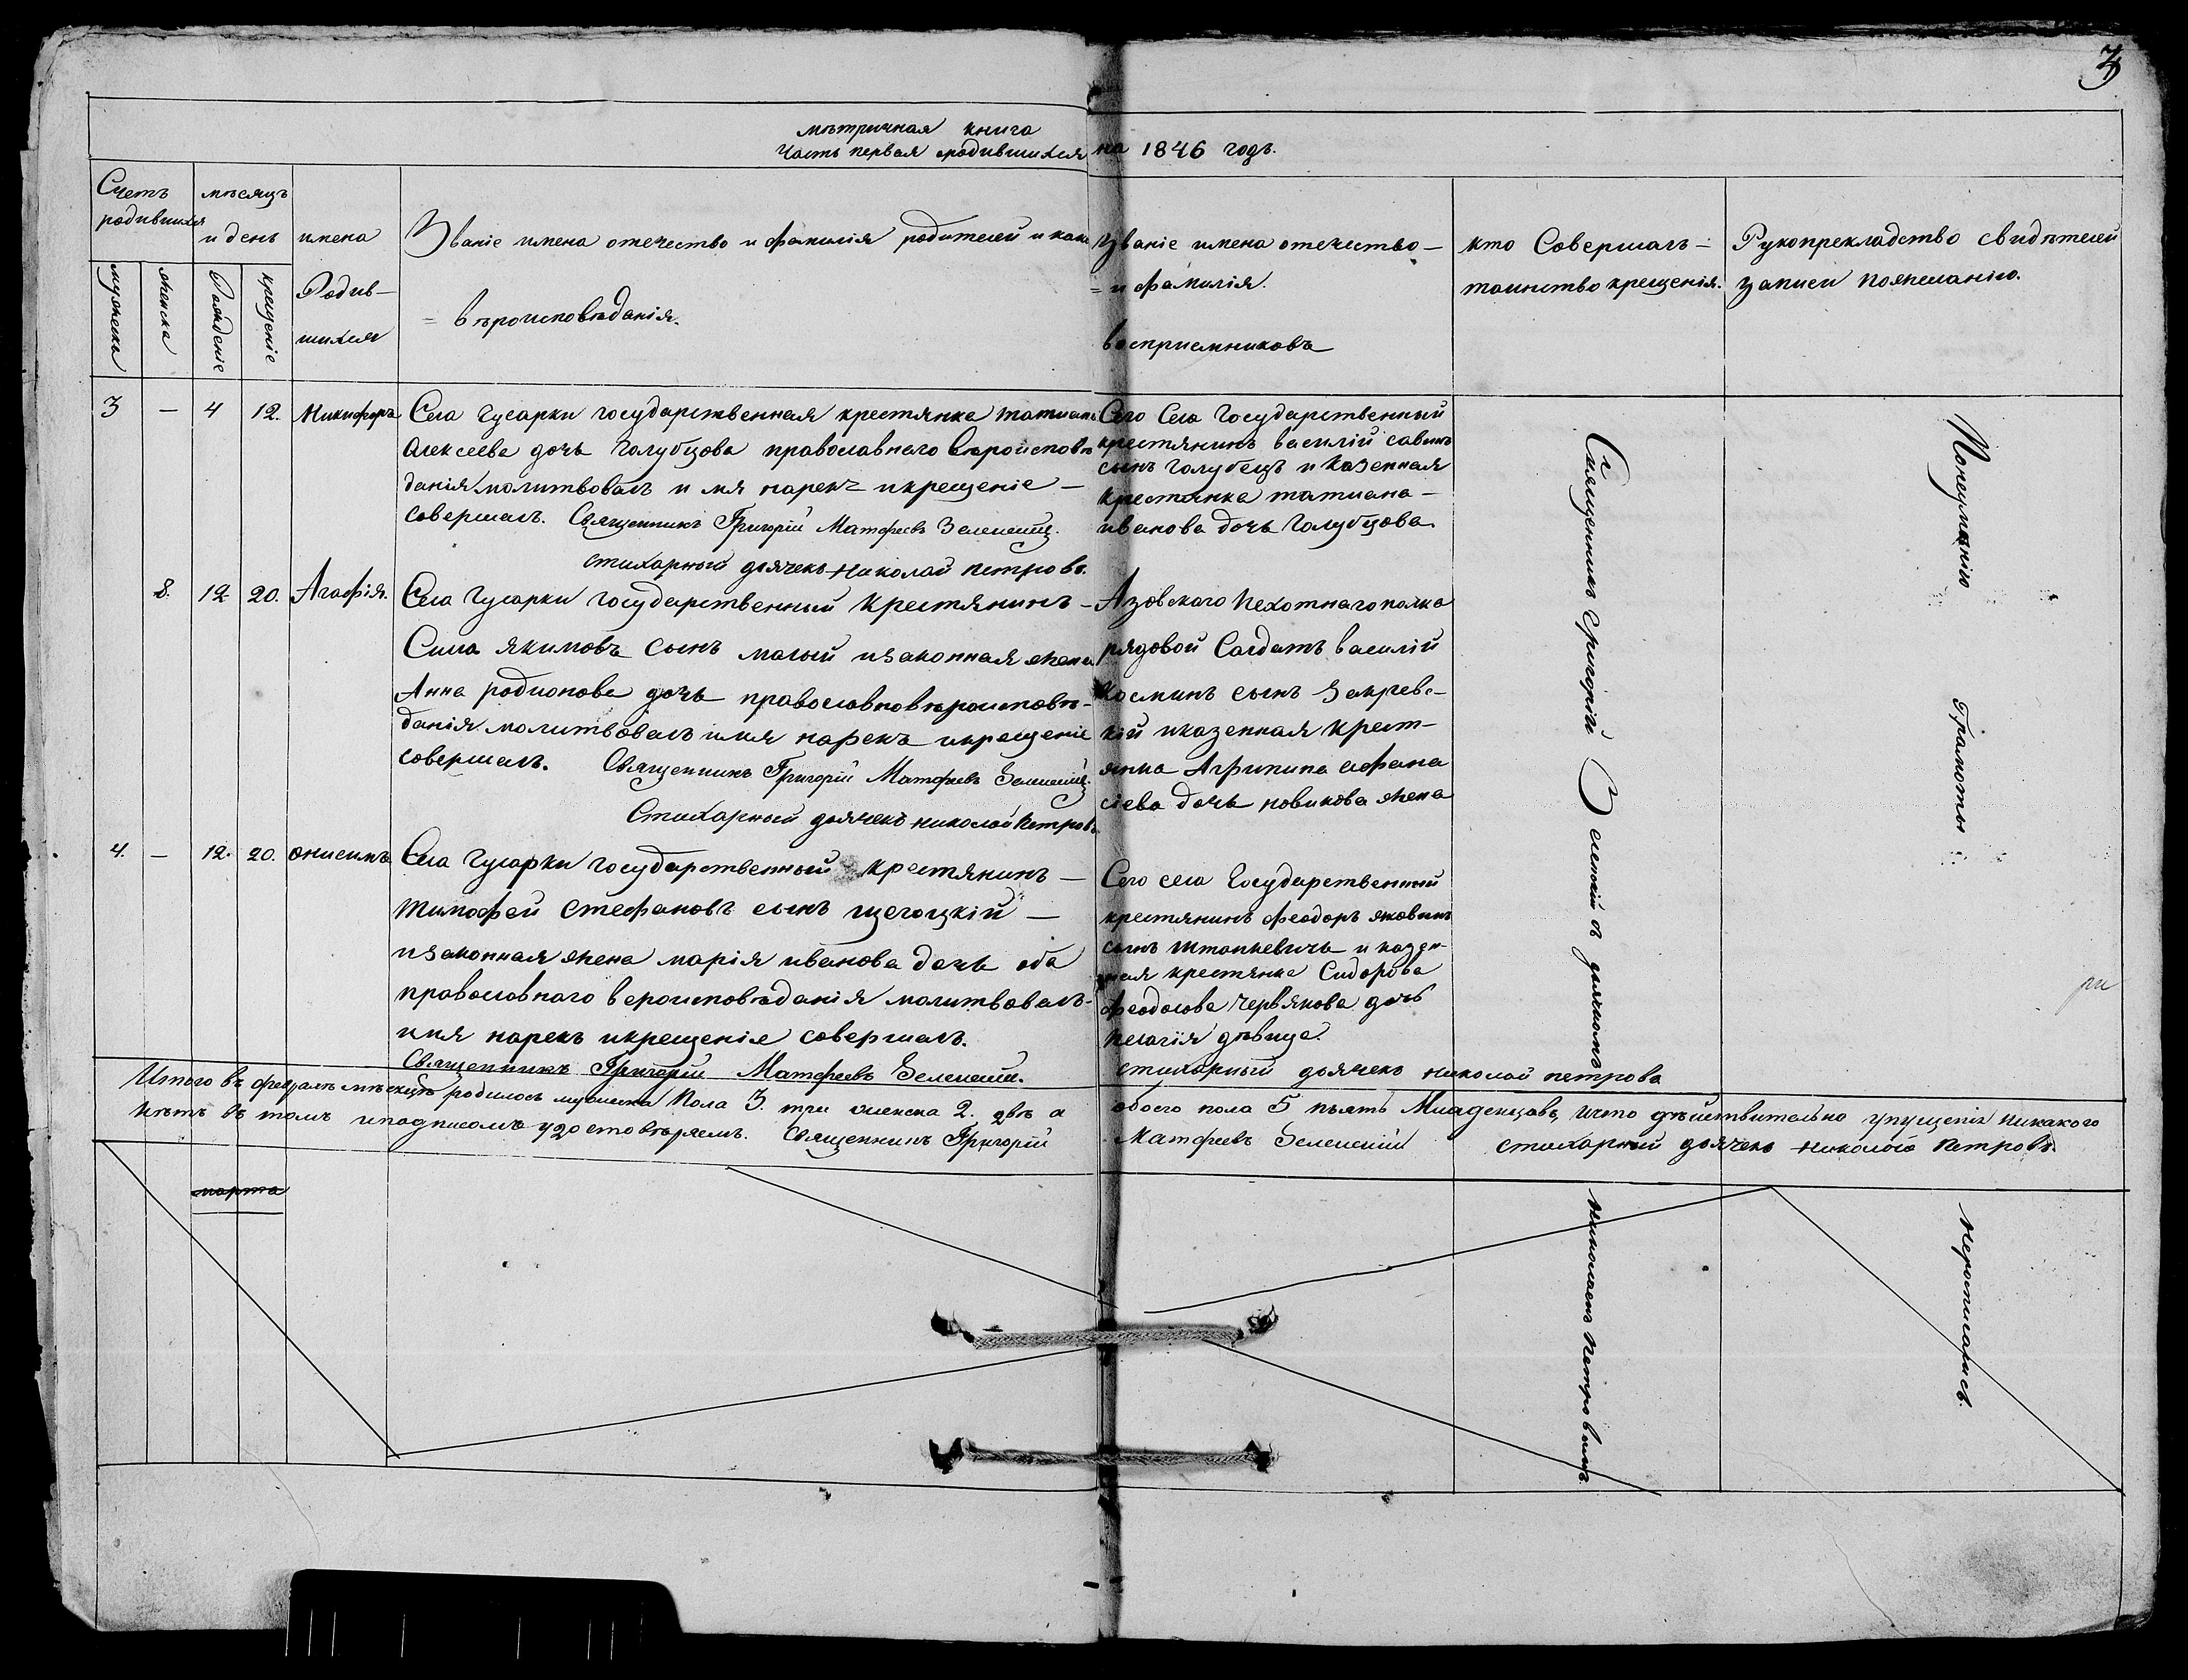 3
мѣтричная книга
Часть первая ородившихся на 1846 годъ.
Счетъ
родившихся
мѣсяцъ
и день
имена
Родив-
шихся
мужеска
женска
Рожденіе
крещеніе
Званіе имена отечество и фамилія родителей и како
= вѣроисповѣданія.
Званіе имена отечество-
= и фамилія.
воспріемниковъ
кто Совершалъ -
таинство крещенія.
Рукопрекладство свидѣтелей
записи пожеланію.
3 — 4 12. Никифоръ
Села Гусарки государственная крестянка татиана
Алексеева дочь Голубцова православнаго вѣроисповѣ
данія молитвовалъ и мя нарекъ икрещеніе —
совершалъ. Священникъ Григорій Матфеевъ Зеленскій.
стихарный дьячекъ Николай петровъ.
Сего Села Государственный
крестянинъ василій савинъ
сынъ Голубецъ и казенная
крестянка татиана —
иванова дочь Голубцова.
8. 12 20. Агафія.
Села Гусарки Государственный Крестянинъ —
Сила якимовъ сынъ малый изаконная жена
Анна родионова дочь православновѣроисповѣ-
данія молитвовалъ имя нарекъ икрещеніе
совершалъ. Священникъ Григорій Матфеевъ Зеленскій.
Стихарный дьячекъ николай Петровъ
Азовскаго Пехотнаго полка
рядовой Салдатъ василій
Косминъ сынъ Закревс-
кій иказенная Крест-
янка Агрипина афана
сіева дочь новикова жена
4. — 12. 20. Онисимъ
Села Гусарки государственный крестянинъ —
Тимофей Стефановъ сынъ щегоцкій —
изаконная жена марія иванова дочь оба
православнаго вероисповѣданія молитвовалъ-
имя нарекъ икрещеніе совершалъ.
Священникъ Григорій Матфеевъ Зеленскій.
Сего села Государственный
крестянинъ феодоръ яковинъ
сынъ Штанкевичъ и казен-
ная крестянка Сидорова
феодосова Червякова дочь
пелагія дѣвица.
стихарный дьячекъ николай петровъ
Священникъ Григорій Зеленскій съ дьячкомъ
Николаемъ Петровимъ.
Понеумѣнію Грамоты
Неросписались.
Итого въ февралѣ мѣсяцѣ родилось мужеска Пола 3. три женска 2. двѣ а обоего пола 5 пьять Младенцовъ, ичто дѣйствительно упущенія никакого
нѣтъ въ томъ иподписомъ удостовѣряемъ. Священникъ Григорій Матфеевъ Зеленскій стихарный дьячекъ николай Петровъ.
марта